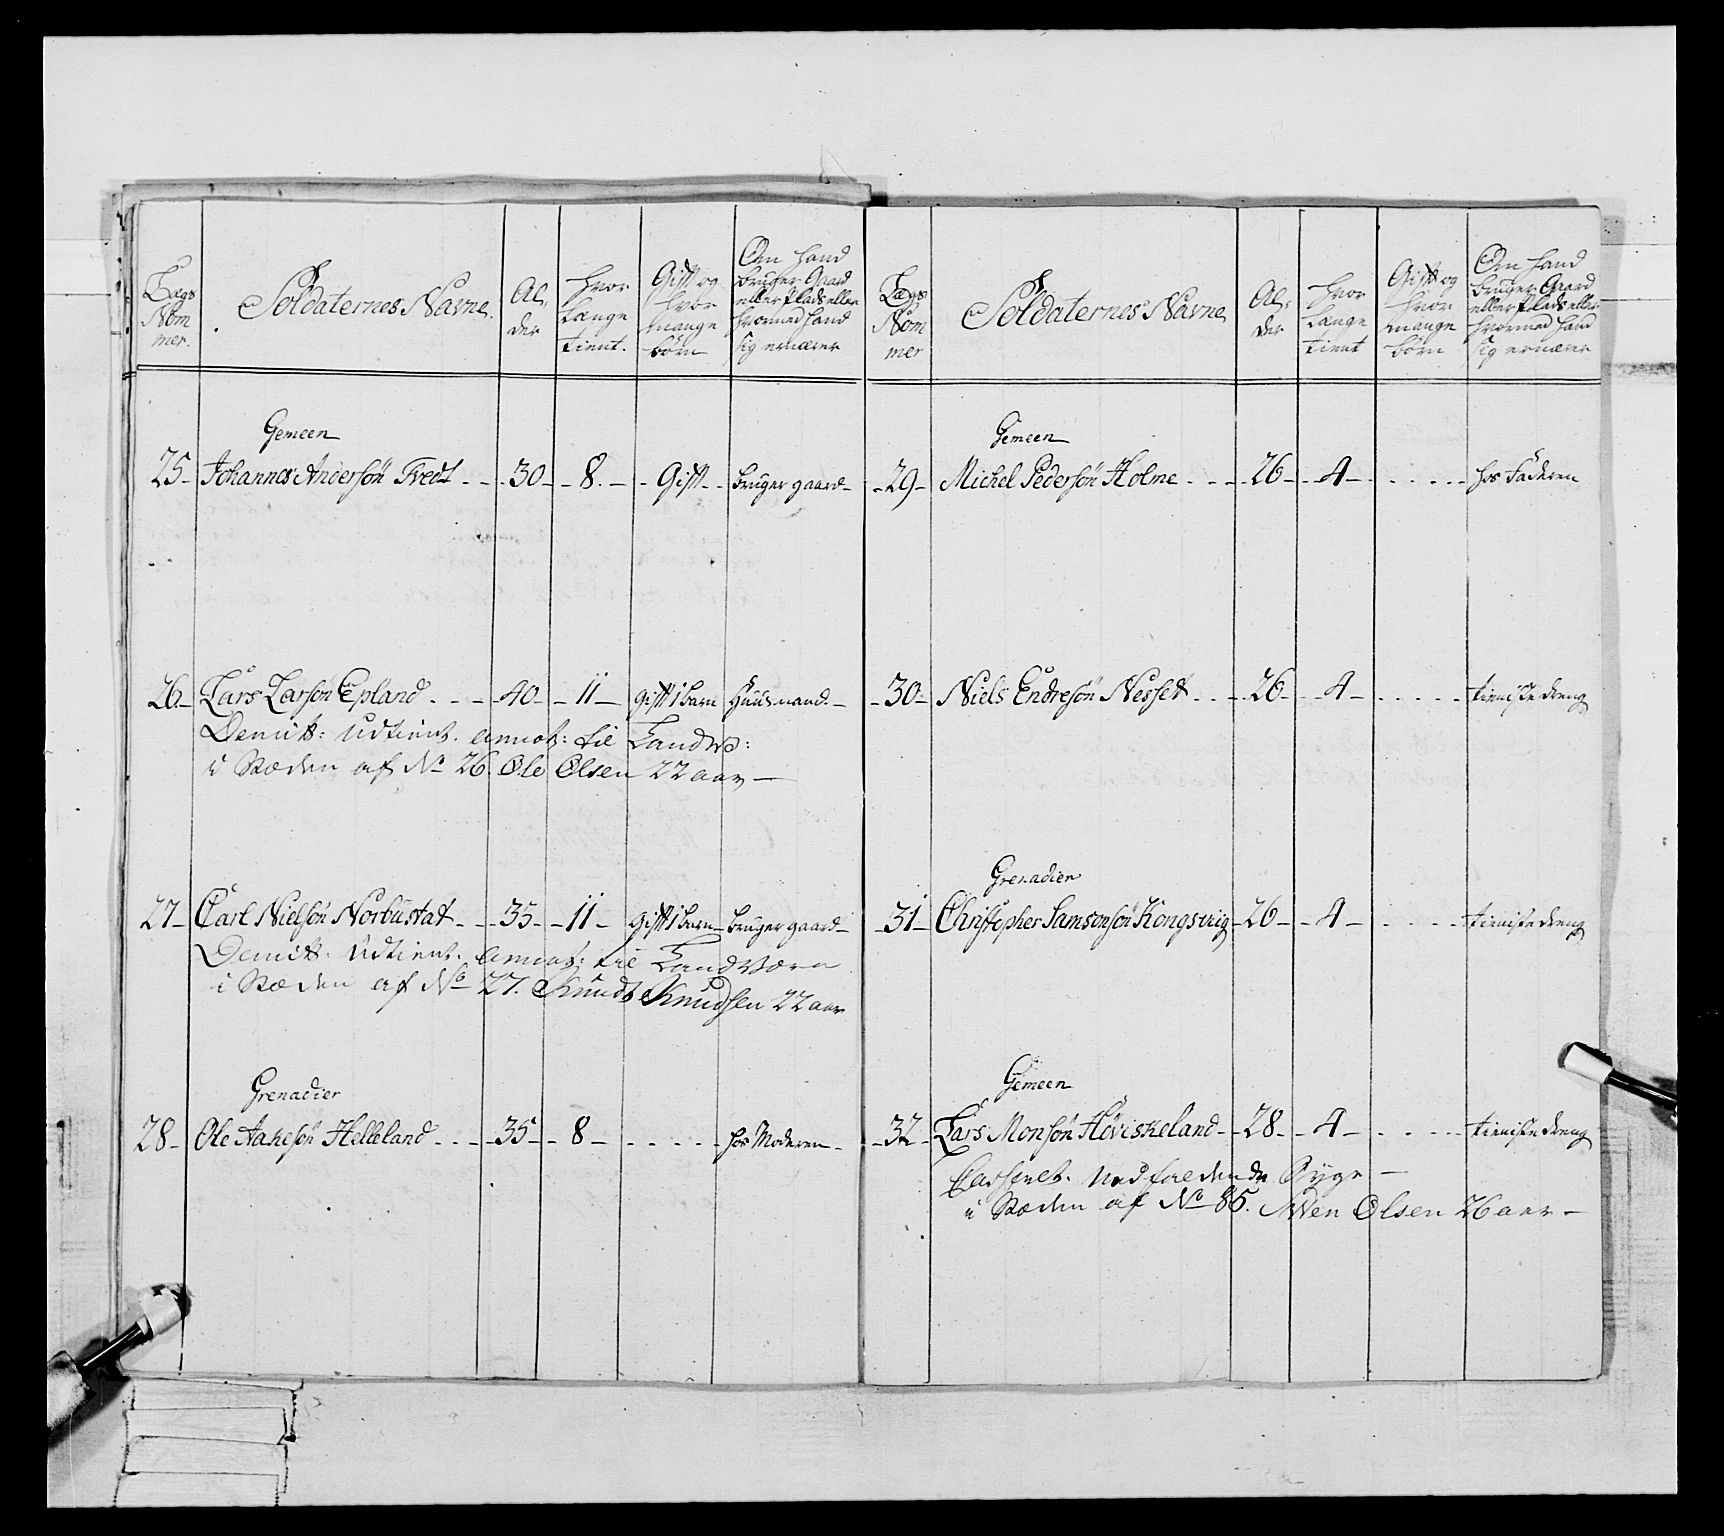 Lægs
Nom
mer.
Soldaternes Navne.
Al,
der
hvor
Længe
tient.
Gift og
hvor
mange
börn
Om hand
bruger Gaard
eller Plads eller
hvormed hand
sig ernærer
Gemeen
25- Johannes Andersön Tvedt - - -30- - 8. - - Gift - - bruger gaard-
26- Lars Larson Epland. - - - -40- - 11 - gift 1 barn Huusmand. -
Demitt: Udtient. annot: til Landv:
i Stæden af No 26 Ole Olsen 22 aar -
27- Carl Nielsön Norbustat - - -35- - 11 - gift 1 barn- bruger gaard-
Demitt. Udtient. annot: til Landværn
i Stæden af No 27. Knudt Knudsen 22 aar
Grenadier
28- Ole Aakesön Helleland - - - -35- - 8 - - - - - - hos Moderen -
Lægs
Nom
mer
Soldaternes Navne
Al,
der
hvor
Længe
tient
Gift og
hvor
mange
börn
Om hand
bruger Gaard
eller Plads eller
hvormed hand
sig ernærer
Gemeen
- 29- Michel Pedersön Holme - - - -26- - 4 - - - - - - hos Faderen
- 30- Niels Endresön Nesset - - - -26- - 4 - - - - - - tieniste dreng
Grenadier
- 31- Christopher Samsonsön Kongsvig -26- - 4 - - - - - - tieniste dreng
Gemeen
- 32- Lars Monsön Höviskeland - -28- - 4 - - - - - - tieniste dreng
Casseret. Nedfaldende Syge -
i Stæden af No 85. Swen Olsen 26 aar -